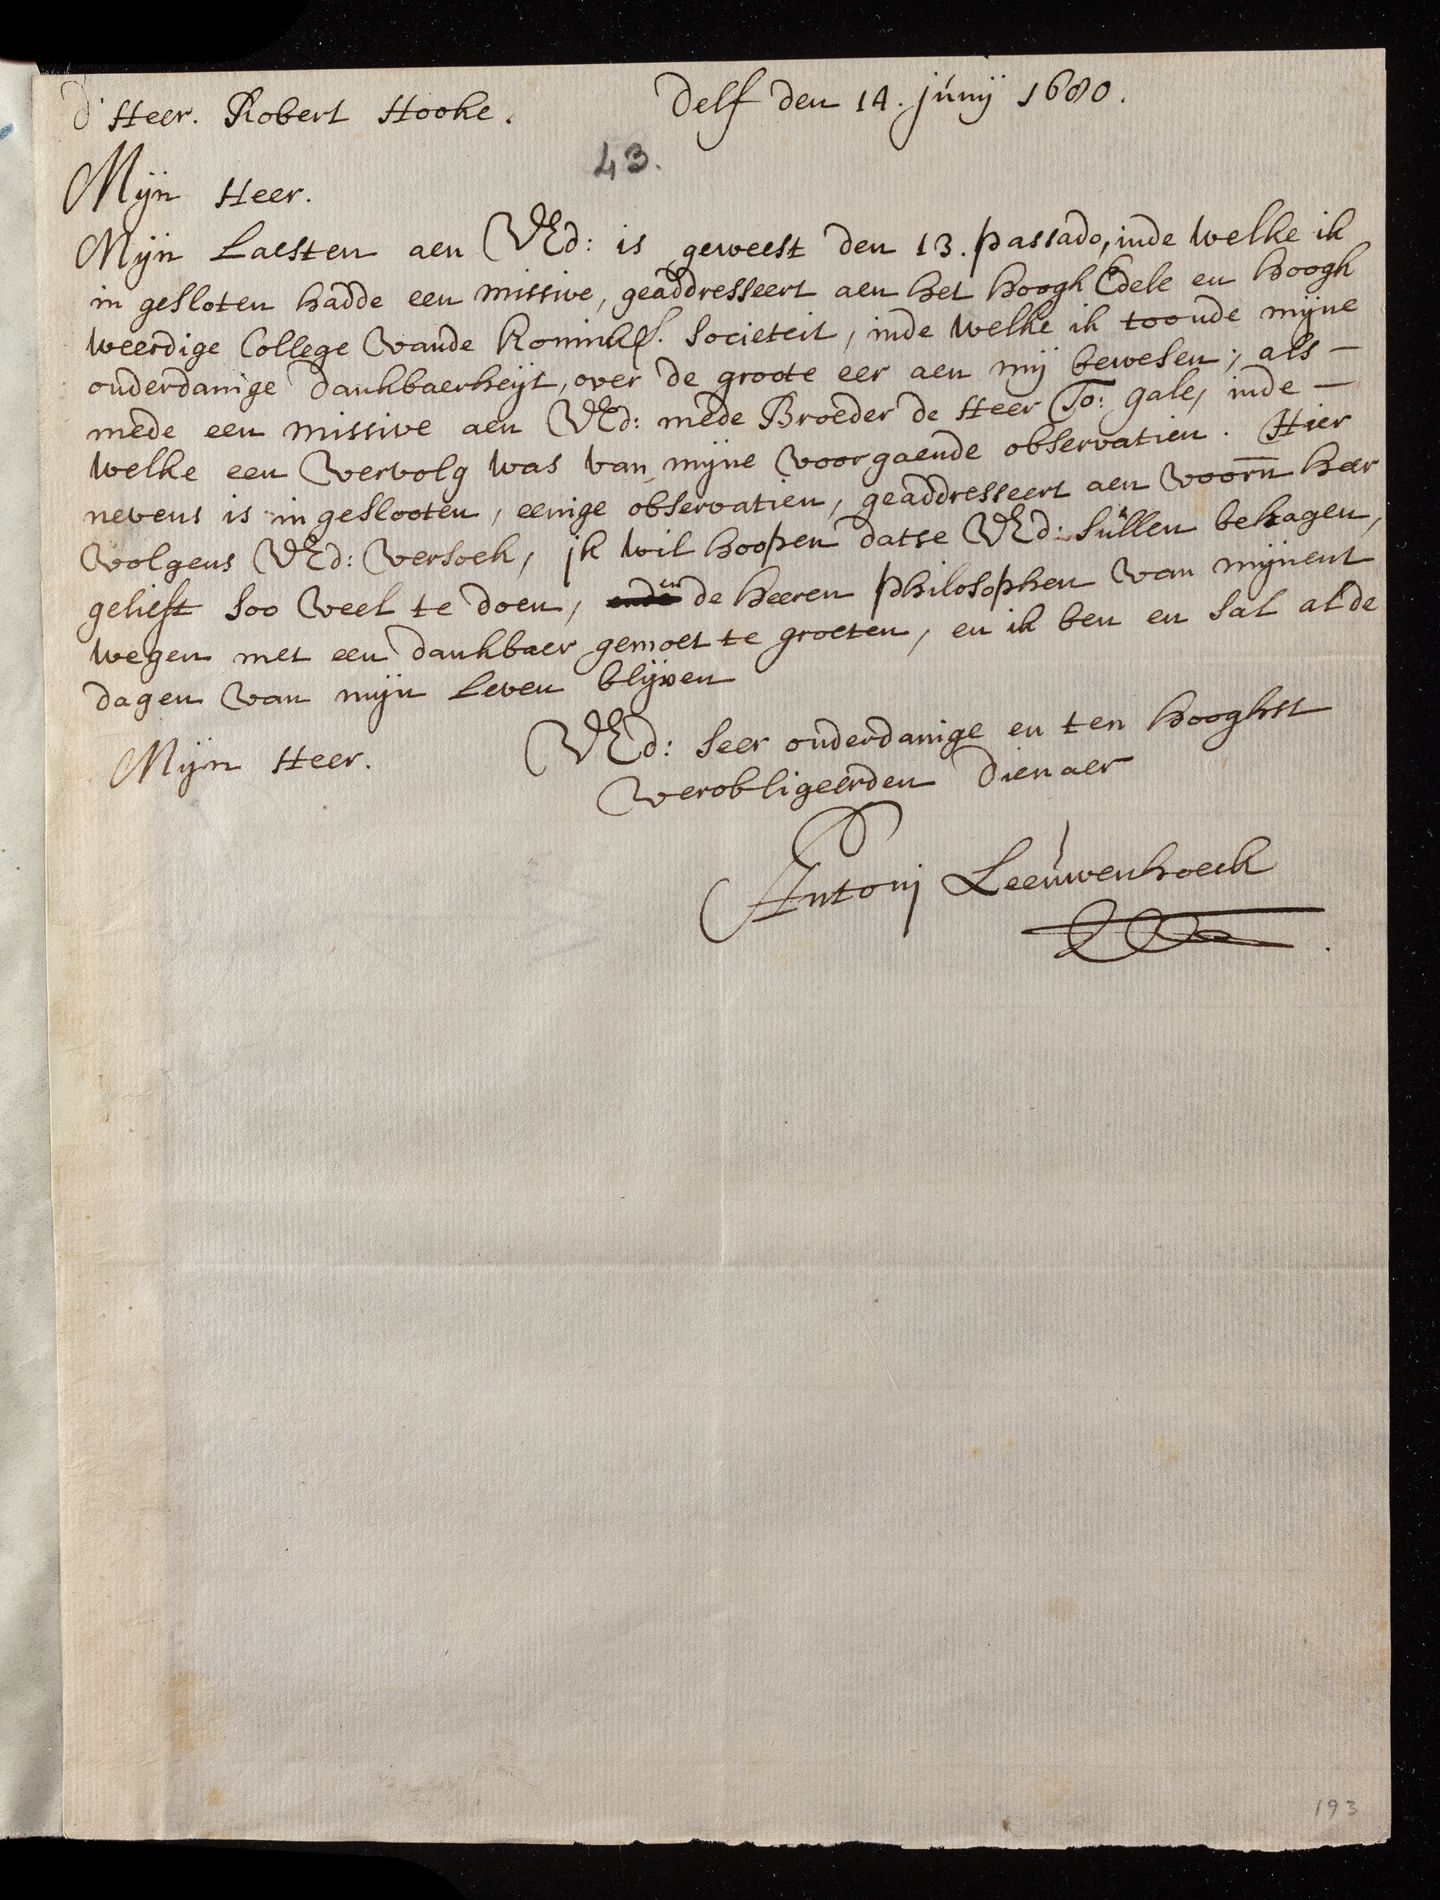 d'Heer. Robert Hooke. Delf den 14. junij 1680.
43.
Mijn Heer.
Mijn Laesten aen VEd: is geweest den 13. passado, inde welke ik
in gesloten hadde een missive, geaddresseert aen het hoogh Edele en hoogh
weerdige College vande Koninkl. Societeit, inde welke ik toonde mijne
onderdanige dankbaerheijt, over de groote eer aen mij bewesen; als-
mede een missive aen VEd: mede Broeder de Heer To: gale, inde-
welke een vervolg was van mijne voorgaende observatien. Hier
nevens is in geslooten, eenige observatien, geaddresseert aen voorn heer
volgens VEd: versoek, ik wil hoopen datse VEd: sullen behagen,
gelieft soo veel te doen, en de heeren philosophen van mijnent
wegen met een dankbaer gemoet te groeten, en ik ben en sal al de
dagen van mijn leven blijven
Mijn Heer. VEd: seer onderdanige en ten hooghst
verobligeerden dienaer
Antonj Leeuwenhoeck
193